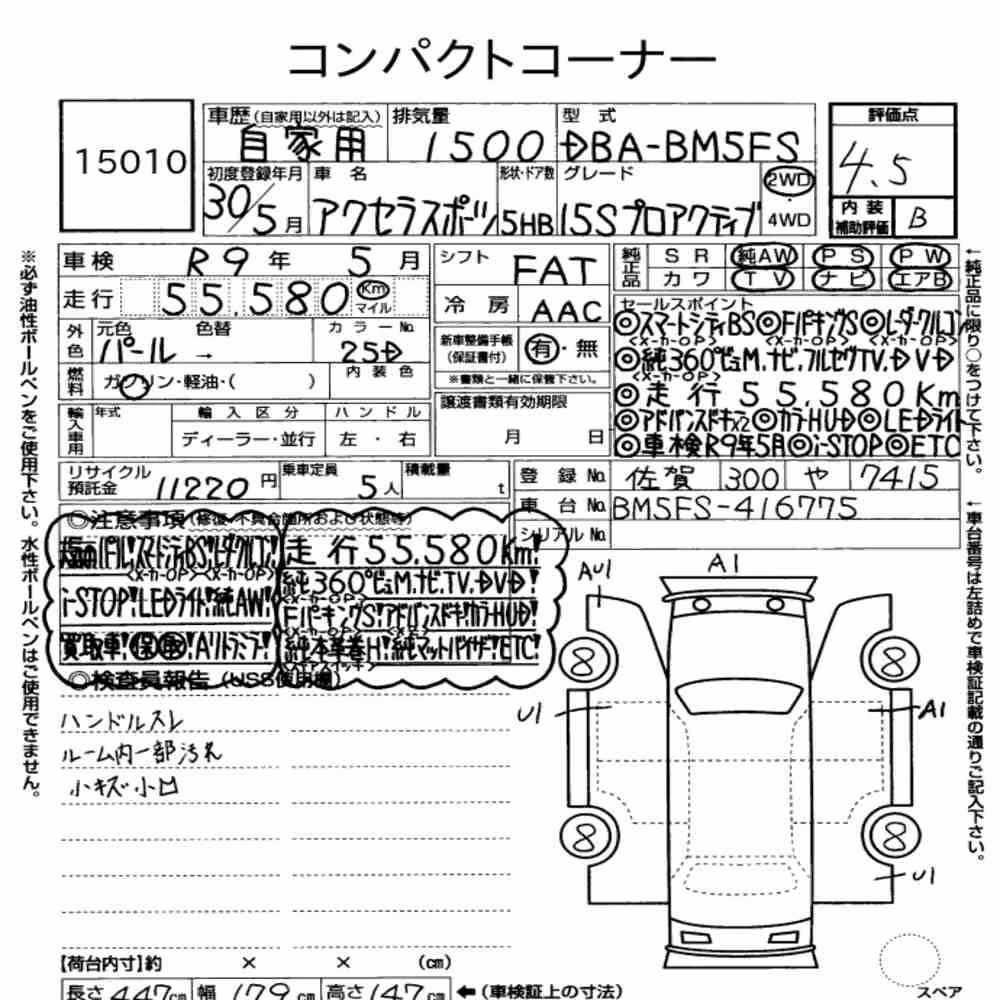 コンパクトコーナー
15010
車歴(自家用以外は記入) 自家用
排気量 1500
型式 DBA-BM5FS
評価点 4.5
内装補助評価 B
初度登録年月 30/5月
車名 アクセラスポーツ
形状・ドア数 5HB
グレード 15Sプロアクティブ
2WD・4WD
車検 R9年 5月
走行 55,580 Km マイル
シフト FAT
冷房 AAC
純正品 SR 純AW PS PW
カワ TV ナビ エアB
外色 元色 パール → 色替
カラーNo. 25D
燃料 ガソリン・軽油・( )
内装色
新車整備手帳(保証書付) 有・無
※書類と一緒に保管下さい。
セールスポイント
◎スマートシティBS◎Fパーキング S◎レーダークルコン
<メーカーOP> <メーカーOP>
◎純360°ビューM.ナビ.フルセグTV.DVD
<メーカーOP>
◎走行55.580Km
◎アドバンスドキー×2◎カラーHUD◎LEDライト
◎車検R9年5月◎i-STOP◎ETC
輸入車用 年式 輸入区分 ディーラー・並行 ハンドル 左・右
譲渡書類有効期限 月 日
リサイクル預託金 11220円
乗車定員 5人
積載量 t
登録No. 佐賀 300 や 7415
車台No. BM5FS-416775
シリアルNo.
◎注意事項(修復・不具合箇所および状態等)
パール!スマートシティBS!レーダークルコン!
<メーカーOP><メーカーOP>
i-STOP!LEDライト!純AW!
買取車!保取!
走行55.580Km!
純360°ビューM.ナビ.TV.DVD!
FパーキングS!アドバンスドキー!カラーHUD!
純本革巻H!純マットバイザー!ETC!
◎検査員報告(USS使用欄)
ハンドルスレ
ルーム内一部汚れ
小キズ小凹
AU1
A1
U1
A1
U1
8
8
8
8
スペア
【荷台内寸】約 × × (cm)
長さ447cm 幅179cm 高さ147cm ←(車検証上の寸法)
※必ず油性ボールペンをご使用下さい。水性ボールペンはご使用できません。
←純正品に限り○をつけて下さい。
←車台番号は左詰めで車検証記載の通りご記入下さい。